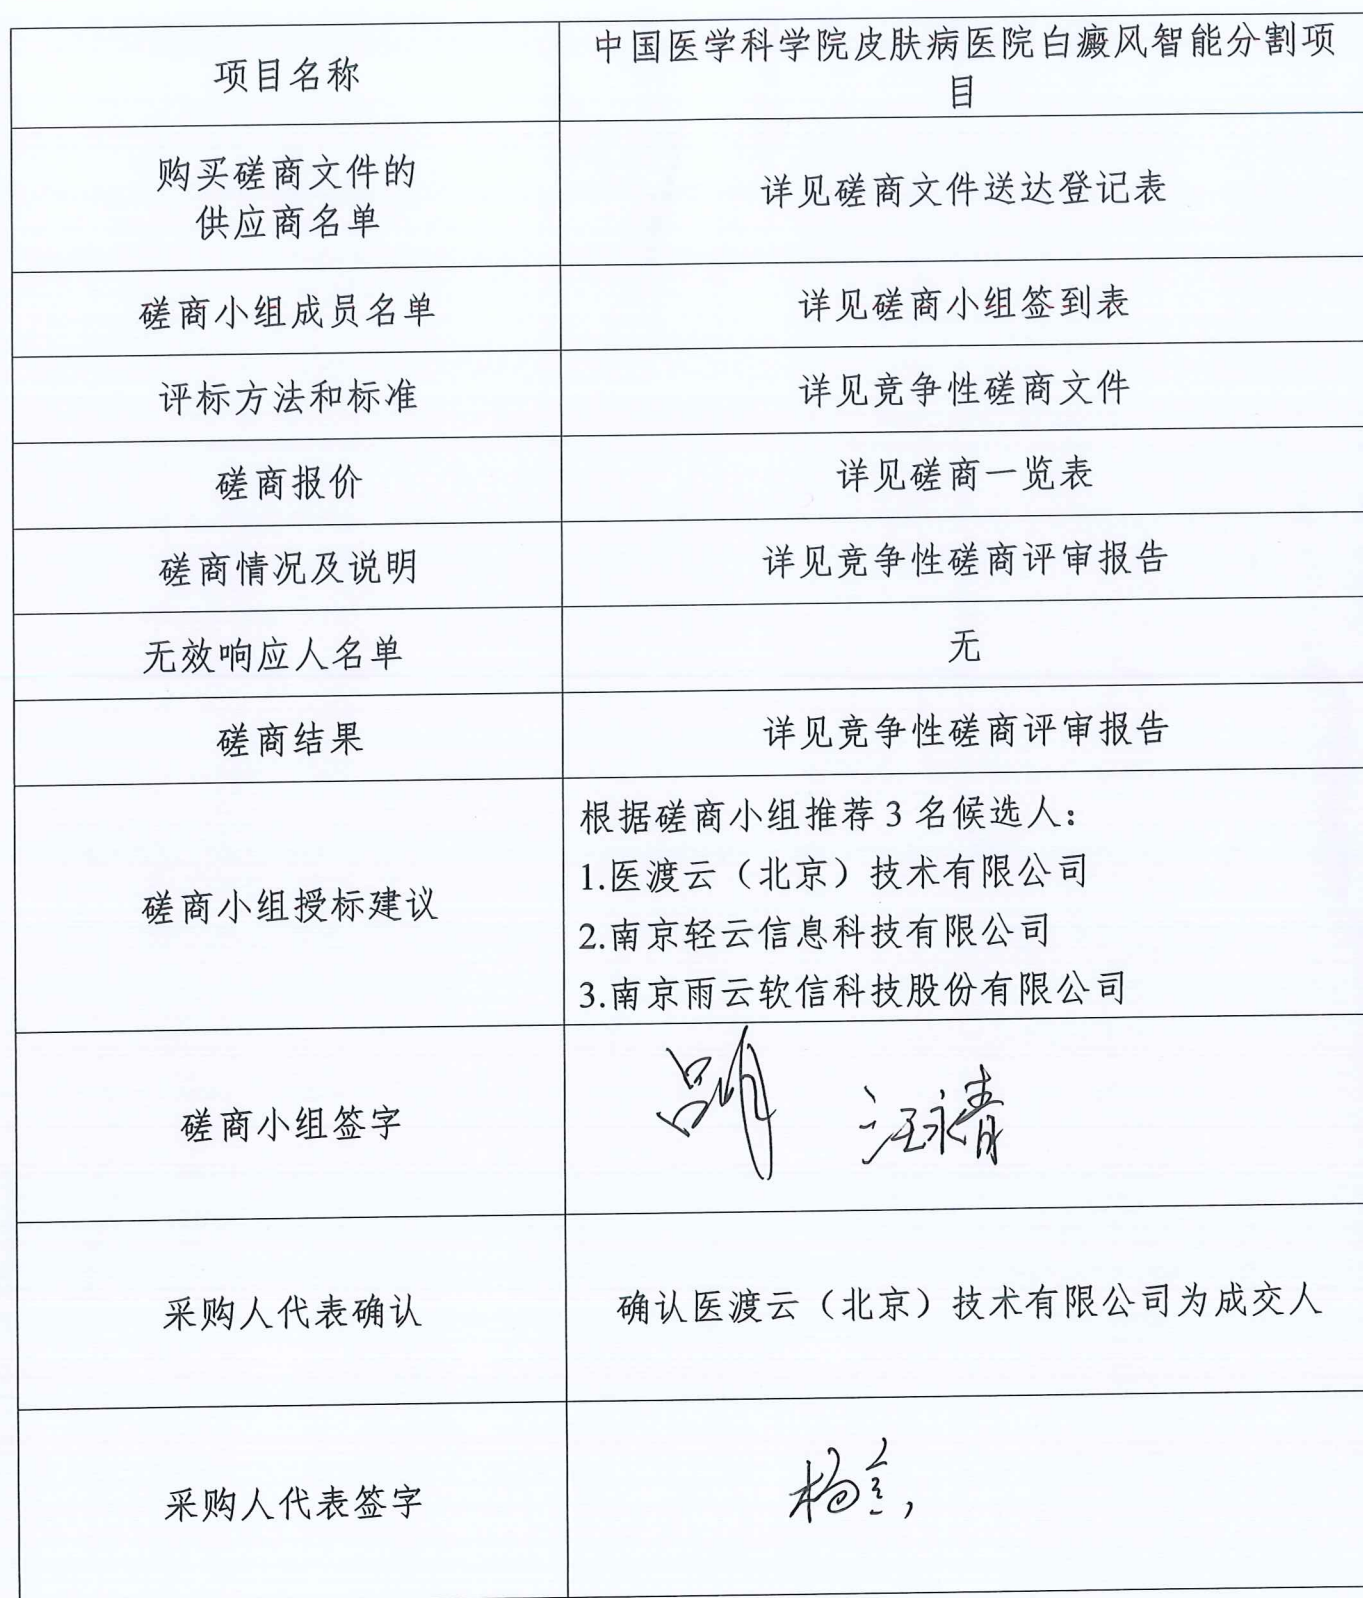 项目名称
中国医学科学院皮肤病医院白癜风智能分割项
目
购买磋商文件的
供应商名单
详见磋商文件送达登记表
磋商小组成员名单
详见磋商小组签到表
评标方法和标准
详见竞争性磋商文件
磋商报价
详见磋商一览表
磋商情况及说明
详见竞争性磋商评审报告
无效响应人名单
无
磋商结果
详见竞争性磋商评审报告
磋商小组授标建议
根据磋商小组推荐 3 名候选人：
1.医渡云（北京）技术有限公司
2.南京轻云信息科技有限公司
3.南京雨云软信科技股份有限公司
磋商小组签字
汪永青
采购人代表确认
确认医渡云（北京）技术有限公司为成交人
采购人代表签字